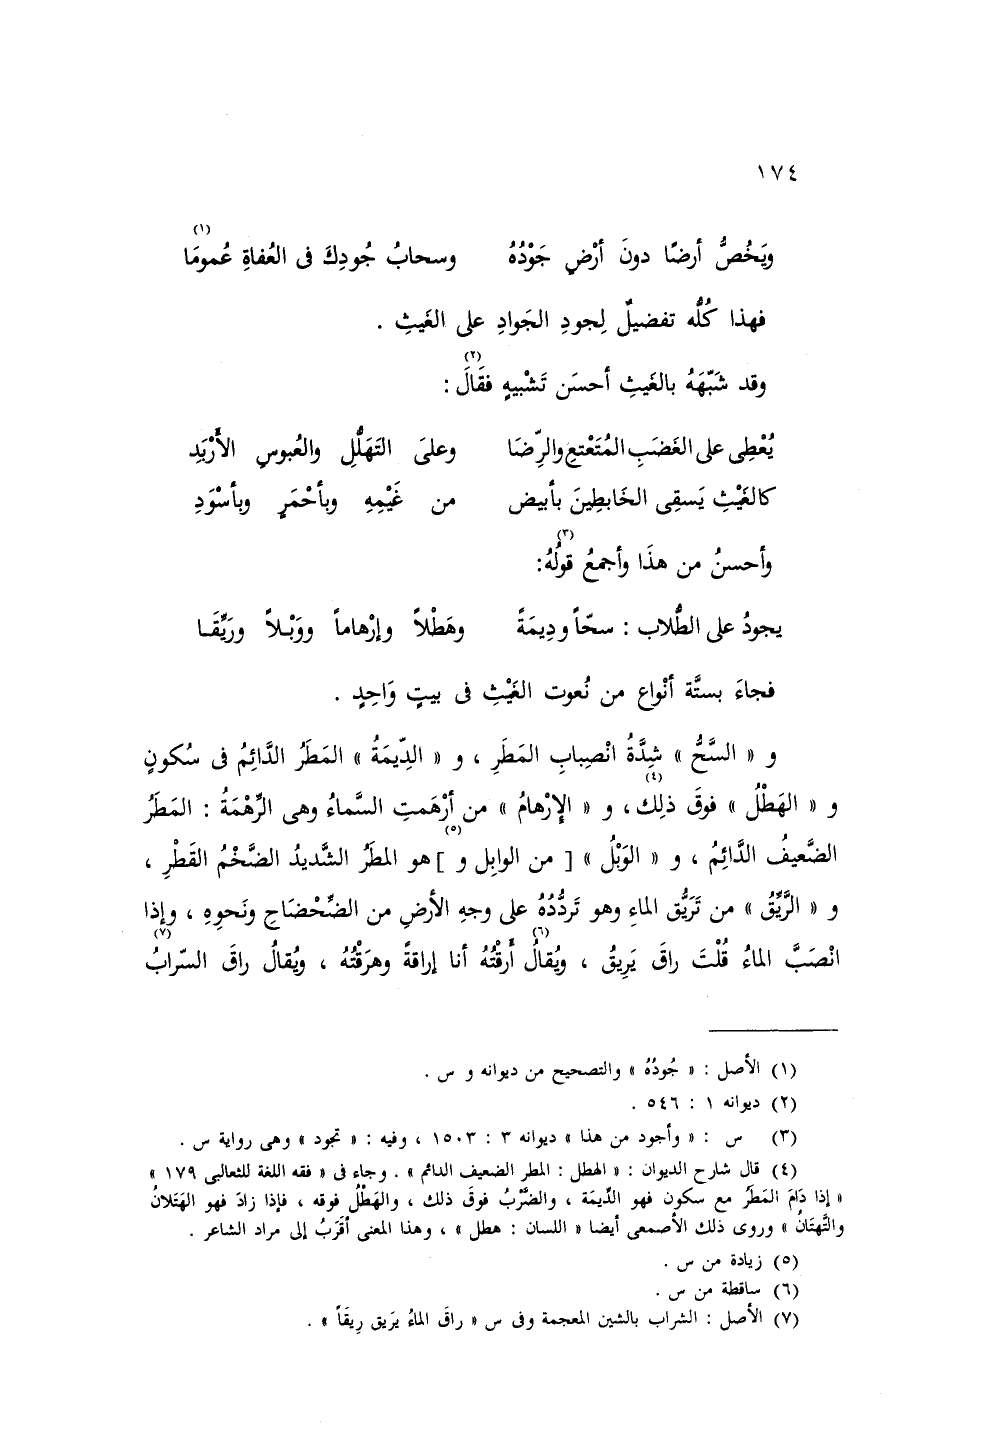 ١٧٤
ويَخُصُّ أرضًا دونَ أرْضٍ جَوْدُهُ    وسحابُ جُودِكَ فى العُفاةِ عُمومَا (١)
فهذا كُلُّه تفضيلٌ لِجودِ الجَوادِ على الغَيثِ .
وقد شَبَّهَهُ بالغَيثِ أحسَن تَشْبيهٍ فقَالَ (٢) :
يُعْطِى على الغَضَبِ المُتَعْتعِ والرِّضَا    وعلىَ التَهَلُّلِ والعُبوسِ الأَرْبَدِ
كالغَيْثِ يَسقِى الخَابطِينَ بأبيض    من غَيْمِهِ وبأحْمَرٍ وبأسْوَدِ
وأحسنُ من هذَا وأجمعُ قولُهُ (٣):
يجودُ على الطُّلاب : سحّاً وديمَةً    وهَطْلاً وإرْهاماً ووَبْلاً ورَيِّقَا
فجاءَ بستَّة أنْواع من نُعوت الغَيْثِ فى بيتٍ وَاحِدٍ .
و « السَّحُّ » شِدَّةُ انْصِبابِ المَطَرِ ، و « الدِّيمَةُ » المَطَرُ الدَّائِمُ فى سُكونٍ
و « الهَطْلُ » فوقَ ذلِك (٤) ، و « الإرْهامُ » من أرْهَمتِ السَّماءُ وهى الرِّهْمَةُ : المَطَرُ
الضَّعيفُ الدَّائِمُ ، و « الوَبْلُ » [ من الوابِل و ] (٥) هو المطَرُ الشَّديدُ الضَّخْمُ القَطْرِ ،
و « الرَّيِّقُ » من تَرَيُّق الماءِ وهو تَردُّدُهُ على وجهِ الأرضِ من الضَّحْضَاحِ ونَحوِهِ ، وإذا
انْصَبَّ الماءُ قُلْتَ راقَ يَرِيقُ ، ويُقالُ (٦) أرقْتُهُ أنا إراقةً وهرَقْتُهُ ، ويُقالُ راقَ السّرابُ (٧)
(١) الأصل : « جُودُهُ » والتصحيح من ديوانه و س .
(٢) ديوانه ١ : ٥٤٦ .
(٣) س : « وأجود من هذا » ديوانه ٣ : ١٥٠٣ ، وفيه : « تجود » وهى رواية س .
(٤) قال شارح الديوان : « الهطل : المطر الضعيف الدائم » . وجاء فى « فقه اللغة للثعالبى ١٧٩ »
« إذا دَامَ المَطَرُ مع سكون فهو الدِّيمَة ، والضَّرْبُ فوقَ ذلك ، والهَطْلُ فوقه ، فإذا زادَ فهو الهَتَلانُ
والتَّهتَانُ » وروى ذلك الأصمعى أيضا « اللسان : هطل » ، وهذا المعنى أقرَبُ إلى مراد الشاعر .
(٥) زيادة من س .
(٦) ساقطة من س .
(٧) الأصل : الشراب بالشين المعجمة وفى س « راقَ الماءُ يَريق رِيقَاً » .